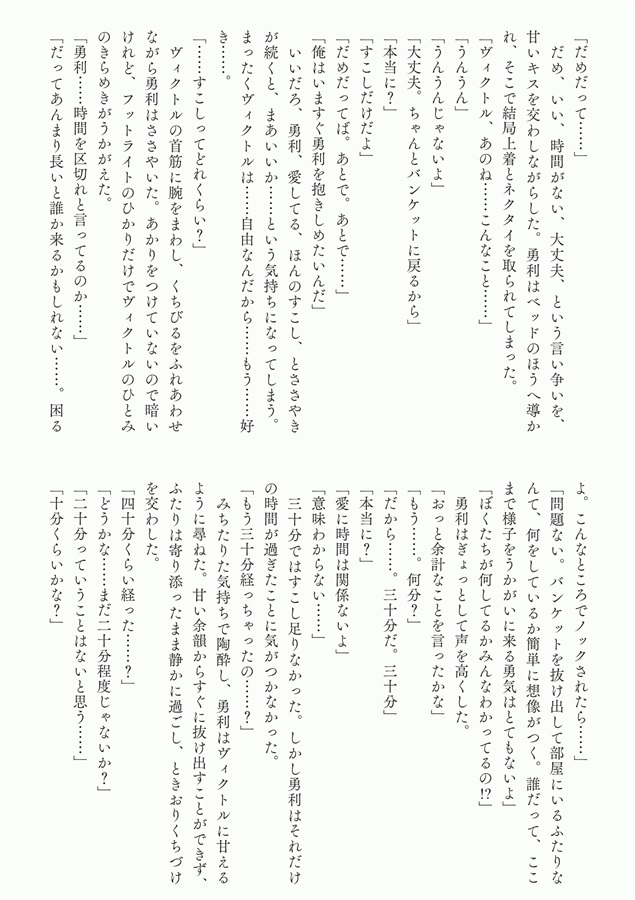 「だめだって……」
　だめ、いい、時間がない、大丈夫、という言い争いを、
甘いキスを交わしながらした。勇利はベッドのほうへ導か
れ、そこで結局上着とネクタイを取られてしまった。
「ヴィクトル、あのね……こんなこと……」
「うんうん」
「うんうんじゃないよ」
「大丈夫。ちゃんとバンケットに戻るから」
「本当に？」
「すこしだけだよ」
「だめだってば。あとで。あとで……」
「俺はいますぐ勇利を抱きしめたいんだ」
　いいだろ、勇利、愛してる、ほんのすこし、とささやき
が続くと、まあいいか……という気持ちになってしまう。
まったくヴィクトルは……自由なんだから……もう……好
き……。
「……すこしってどれくらい？」
　ヴィクトルの首筋に腕をまわし、くちびるをふれあわせ
ながら勇利はささやいた。あかりをつけていないので暗い
けれど、フットライトのひかりだけでヴィクトルのひとみ
のきらめきがうかがえた。
「勇利……時間を区切れと言ってるのか……」
「だってあんまり長いと誰か来るかもしれない……。困る
よ。こんなところでノックされたら……」
「問題ない。バンケットを抜け出して部屋にいるふたりな
んて、何をしているか簡単に想像がつく。誰だって、ここ
まで様子をうかがいに来る勇気はとてもないよ」
「ぼくたちが何してるかみんなわかってるの!?」
　勇利はぎょっとして声を高くした。
「おっと余計なことを言ったかな」
「もう……。何分？」
「だから……。三十分だ。三十分」
「本当に？」
「愛に時間は関係ないよ」
「意味わからない……」
　三十分ではすこし足りなかった。しかし勇利はそれだけ
の時間が過ぎたことに気がつかなかった。
「もう三十分経っちゃったの……？」
　みちたりた気持ちで陶酔し、勇利はヴィクトルに甘える
ように尋ねた。甘い余韻からすぐに抜け出すことができず、
ふたりは寄り添ったまま静かに過ごし、ときおりくちづけ
を交わした。
「四十分くらい経った……？」
「どうかな……まだ二十分程度じゃないか？」
「二十分っていうことはないと思う……」
「十分くらいかな？」